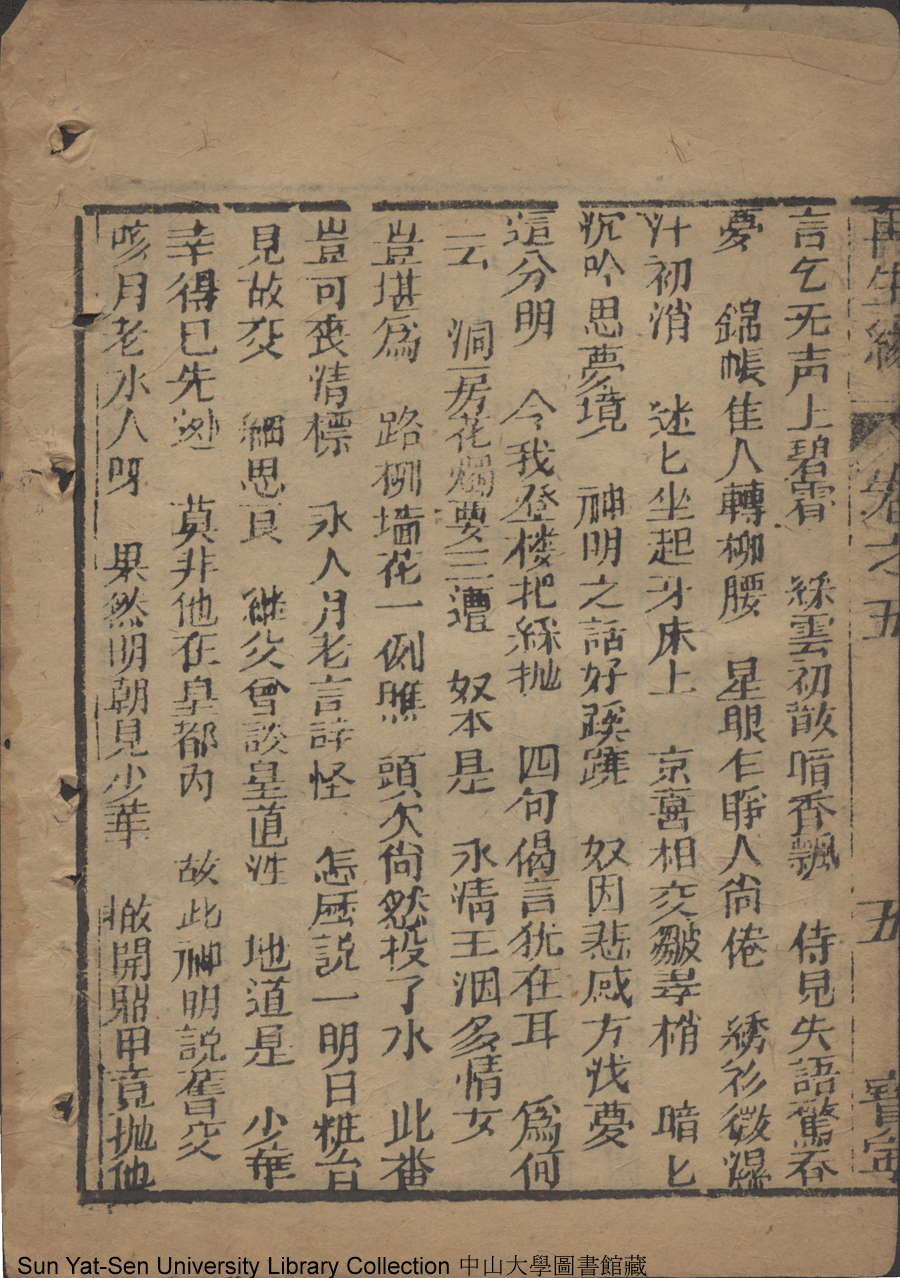 再生緣 卷之五 五 寶寧
言乞无声上碧霄 綵雲初散暗香飄 侍見失語驚春
夢 錦帳隹人轉柳腰 星眼乍睜人尙倦 綉衫微濕
汗初消 迷匕坐起牙床上 京喜相交皺尋梢 暗匕
沉吟思夢境 神明之話好蹊蹺 奴因悲感方伐夢
這分明 今我登楼把綵抛 四句偈言犹在耳 爲何
云 洞房花燭要三遭 奴本是 永清王洇多情女
豈堪爲 路柳墙花一例瞧 頭次尙然投了水 此畨
豈可丧清標 永人月老言詳怪 怎歴説一明日粧台
見故交 細思良 継父曾談皇道性 地道是 少華
幸得已先逊 莫非他在皇都內 故此神明説舊交
咳月老水人呀 果然明朝見少華 撇開鼎甲竟抛他
Sun Yat-Sen University Library Collection 中山大學圖書館藏